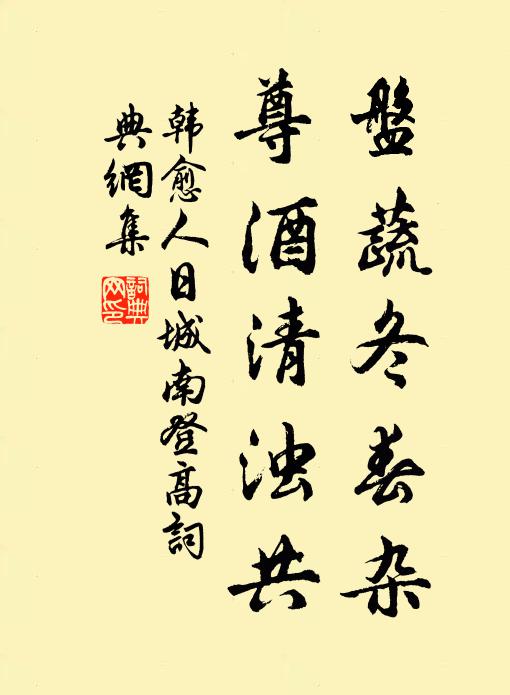 盤蔬冬春杂
尊酒清浊共
韩愈人日城南登高詞
典網集
詞典网印